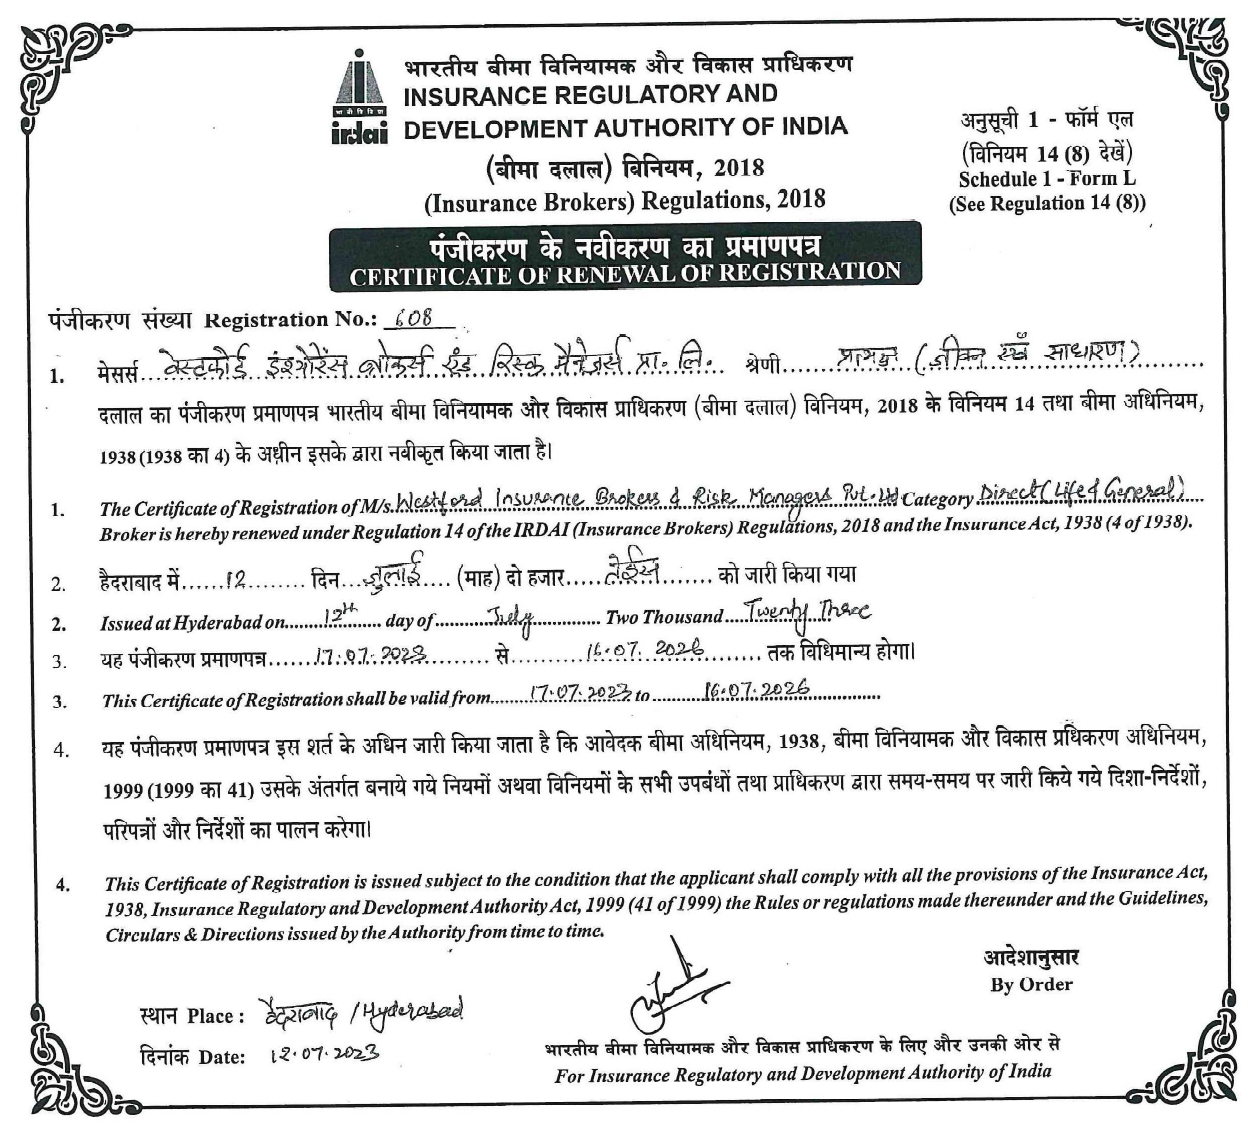 भारतीय बीमा विनियामक और विकास प्राधिकरण
INSURANCE REGULATORY AND
DEVELOPMENT AUTHORITY OF INDIA
भा बी वि वि प्रा
irdai
(बीमा दलाल) विनियम, 2018
(Insurance Brokers) Regulations, 2018
अनुसूची 1 - फॉर्म एल
(विनियम 14 (8) देखें)
Schedule 1 - Form L
(See Regulation 14 (8))
पंजीकरण के नवीकरण का प्रमाणपत्र
CERTIFICATE OF RENEWAL OF REGISTRATION
पंजीकरण संख्या Registration No.: 608
1. मेसर्स वेस्टफोर्ड इंश्योरेंस ब्रोकर्स एंड रिस्क मैनेजर्स प्रा. लि. श्रेणी प्रत्यक्ष (जीवन एवं साधारण)
दलाल का पंजीकरण प्रमाणपत्र भारतीय बीमा विनियामक और विकास प्राधिकरण (बीमा दलाल) विनियम, 2018 के विनियम 14 तथा बीमा अधिनियम,
1938 (1938 का 4) के अधीन इसके द्वारा नवीकृत किया जाता है।
1. The Certificate of Registration of M/s. Westford Insurance Brokers & Risk Managers Pvt. Ltd Category Direct (Life & General)
Broker is hereby renewed under Regulation 14 of the IRDAI (Insurance Brokers) Regulations, 2018 and the Insurance Act, 1938 (4 of 1938).
2. हैदराबाद में......12........ दिन...जुलाई.... (माह) दो हजार.....तेईस....... को जारी किया गया
2. Issued at Hyderabad on.......12th...... day of.........July............ Two Thousand ....Twenty Three
3. यह पंजीकरण प्रमाणपत्र......17.07.2023......... से...........16.07.2026......... तक विधिमान्य होगा।
3. This Certificate of Registration shall be valid from.......17.07.2023 to .........16.07.2026............
4. यह पंजीकरण प्रमाणपत्र इस शर्त के अधिन जारी किया जाता है कि आवेदक बीमा अधिनियम, 1938, बीमा विनियामक और विकास प्रधिकरण अधिनियम,
1999 (1999 का 41) उसके अंतर्गत बनाये गये नियमों अथवा विनियमों के सभी उपबंधों तथा प्राधिकरण द्वारा समय-समय पर जारी किये गये दिशा-निर्देशों,
परिपत्रों और निर्देशों का पालन करेगा।
4. This Certificate of Registration is issued subject to the condition that the applicant shall comply with all the provisions of the Insurance Act,
1938, Insurance Regulatory and Development Authority Act, 1999 (41 of 1999) the Rules or regulations made thereunder and the Guidelines,
Circulars & Directions issued by the Authority from time to time.
आदेशानुसार
By Order
स्थान Place : हैदराबाद / Hyderabad
दिनांक Date: 12.07.2023
भारतीय बीमा विनियामक और विकास प्राधिकरण के लिए और उनकी ओर से
For Insurance Regulatory and Development Authority of India